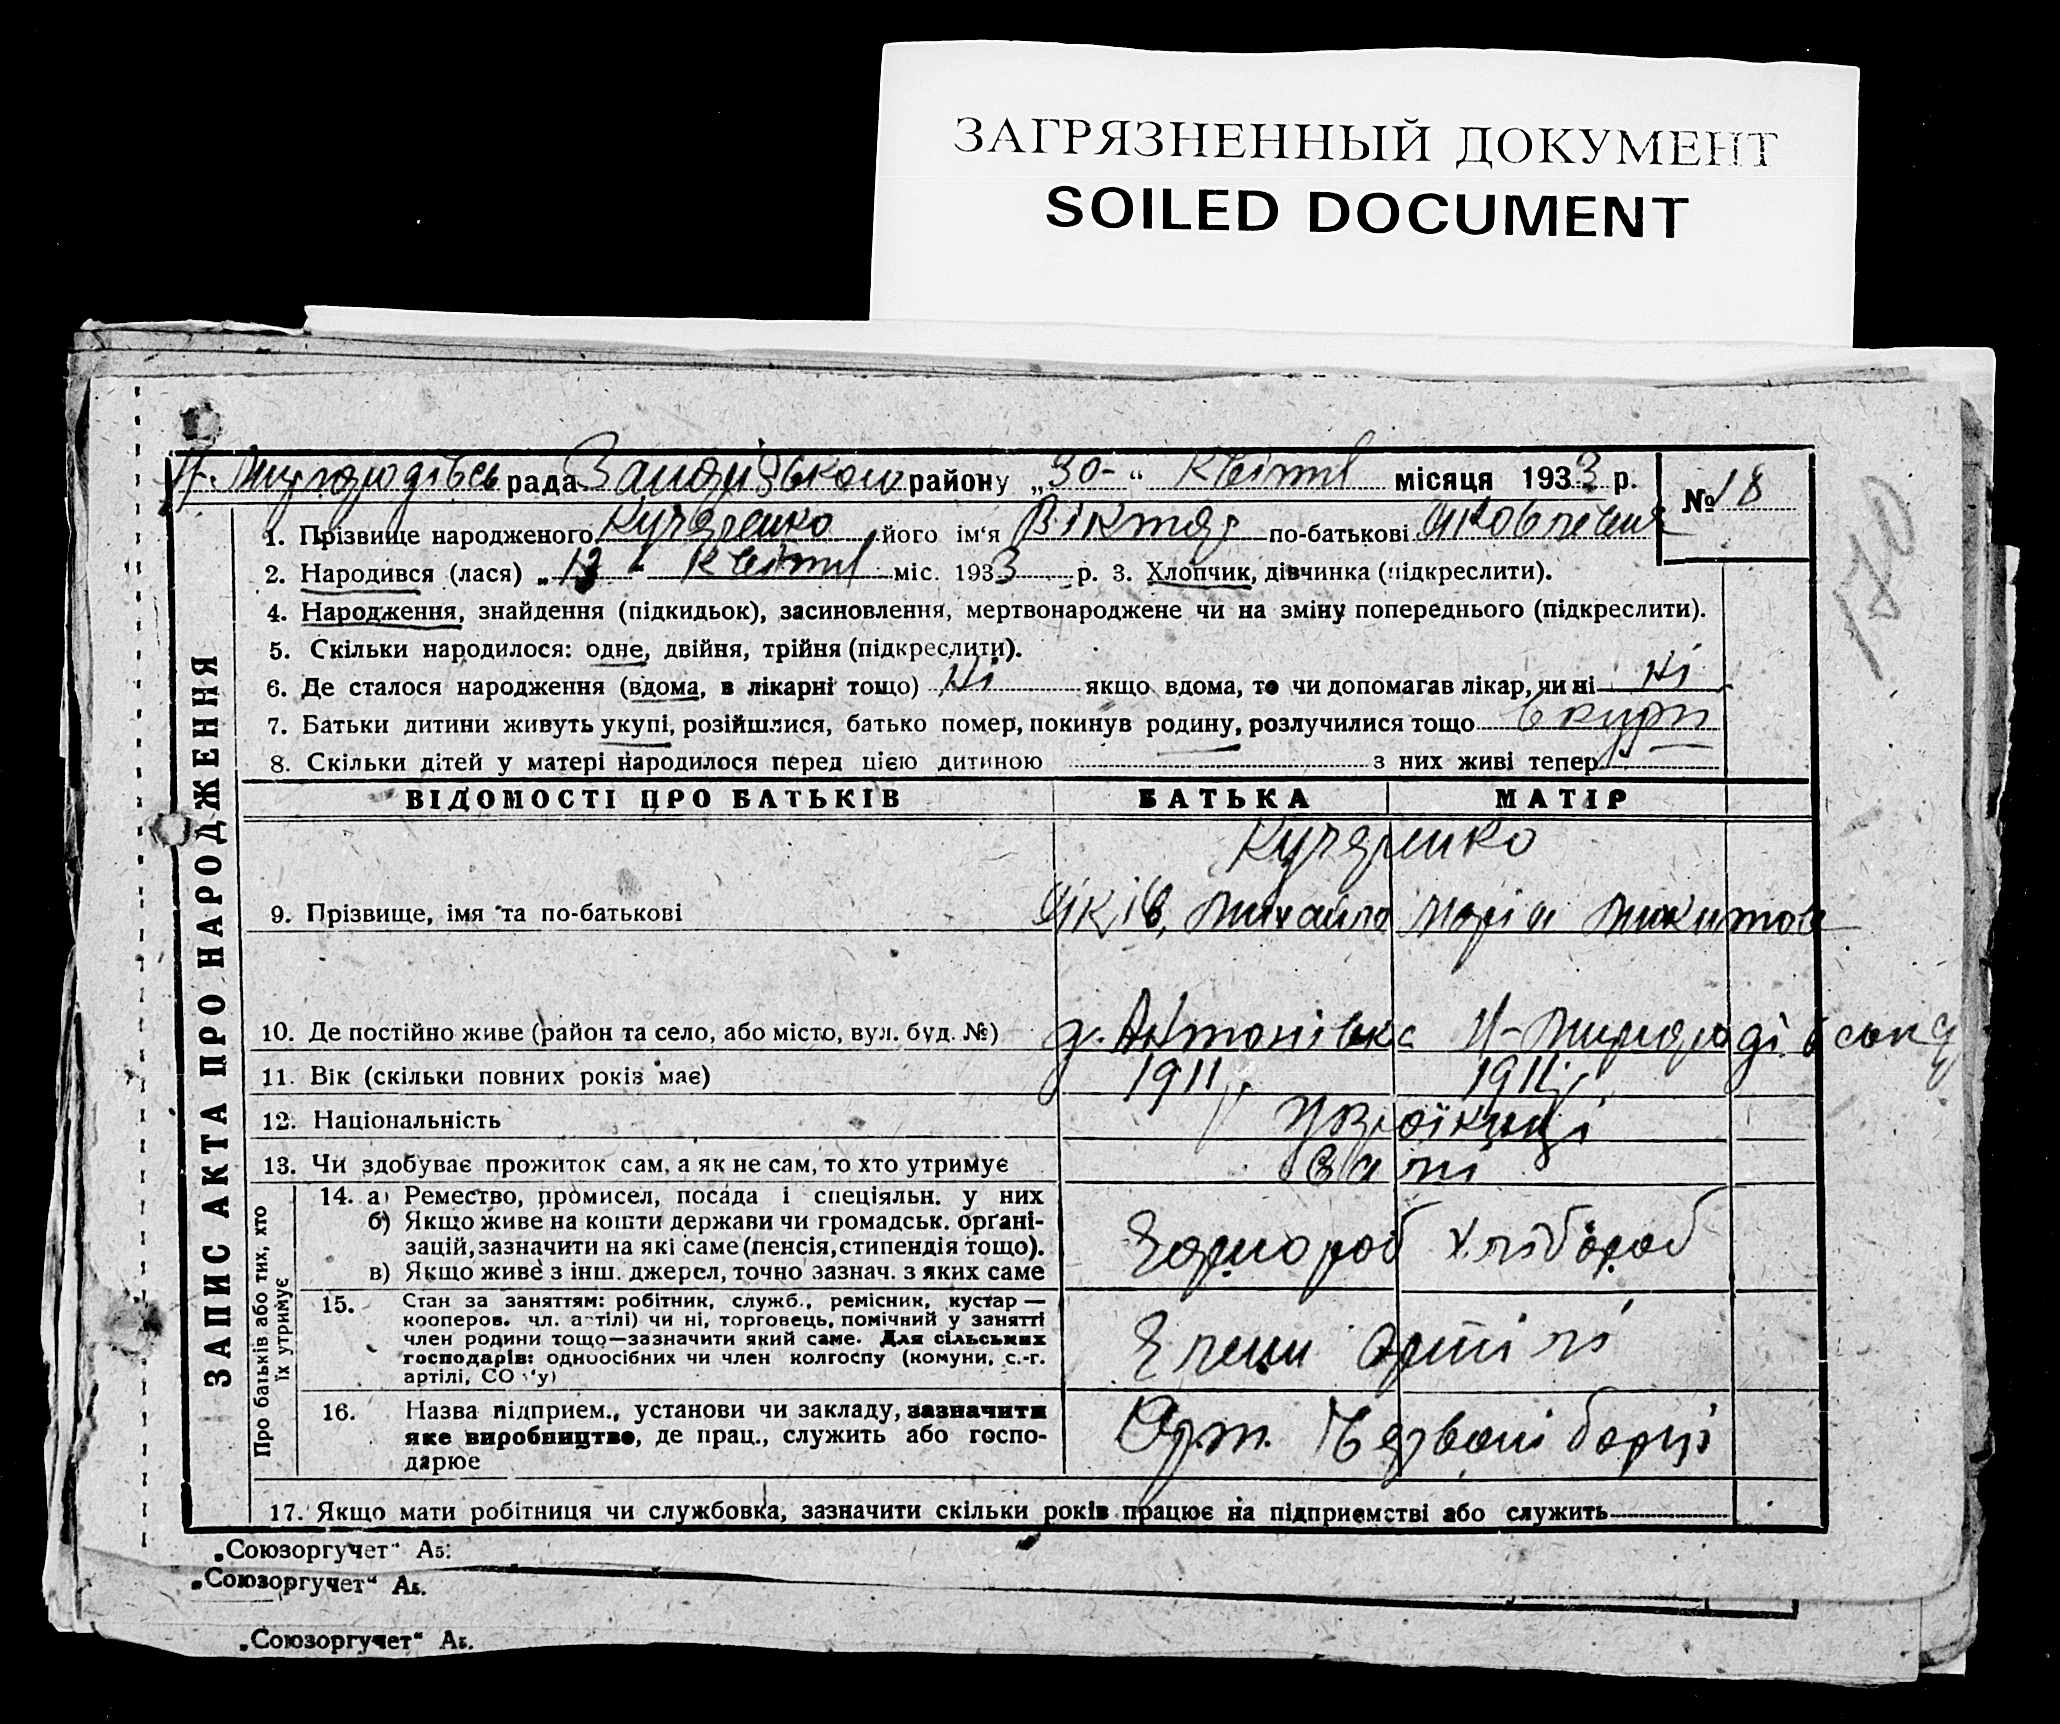 ЗАГРЯЗНЕННЫЙ ДОКУМЕНТ
SOILED DOCUMENT
рада району „30-“ квітня місяця 1933 р. № 18
180
ЗАПИС АКТА ПРО НАРОДЖЕННЯ
1. Прізвище народженого Кучеренко його ім‘я Віктор по-батькові Яковлевич
2. Народився (лася) „ “ квітня міс. 1933 р. 3. Хлопчик, дівчинка (підкреслити).
4. Народження, знайдення (підкидьок), засиновлення, мертвонароджене чи на зміну попереднього (підкреслити).
5. Скільки народилося: одне, двійня, трійня (підкреслити).
6. Де сталося народження (вдома, в лікарні тощо) Ні якщо вдома, то чи допомагав лікар, чи ні Ні
7. Батьки дитини живуть укупі, розійшлися, батько помер, покинув родину, розлучилися тощо вкупі
8. Скільки дітей у матері народилося перед цією дитиною з них живі тепер
ВІДОМОСТІ ПРО БАТЬКІВ БАТЬКА МАТІР
Кучеренко
9. Прізвище, імя та по-батькові Яків, Михайло Марія Микитов
10. Де постійно живе (район та село, або місто, вул. буд. №) Антонівка
11. Вік (скільки повних років має) 1911 1911
12. Національність Українці
13. Чи здобуває прожиток сам, а як не сам, то хто утримує Самі
Про батьків або тих, хто їх утримує
14. а) Ремество, промисел, посада і спеціяльн. у них
б) Якщо живе на кошти держави чи громадськ. органі-
зацій, зазначити на які саме (пенсія, стипендія тощо).
в) Якщо живе з інш. джерел, точно зазнач. з яких саме
Хлібороб Хлібороб
15. Стан за заняттям: робітник, служб., ремісник, кустар —
кооперов. чл. артілі) чи ні, торговець, помічний у занятті
член родини тощо—зазначити який саме. Для сільських
господарів: одноосібних чи член колгоспу (комуни, с.-г.
артілі, СО у)
Члени Артілі
16. Назва підприєм., установи чи закладу, зазначити
яке виробництво, де прац., служить або госпо-
дарює
Арт. Червоні борці
17. Якщо мати робітниця чи службовка, зазначити скільки років працює на підприємстві або служить
„Союзоргучет“ А5.
„Союзоргучет“ А5.
„Союзоргучет“ А5.